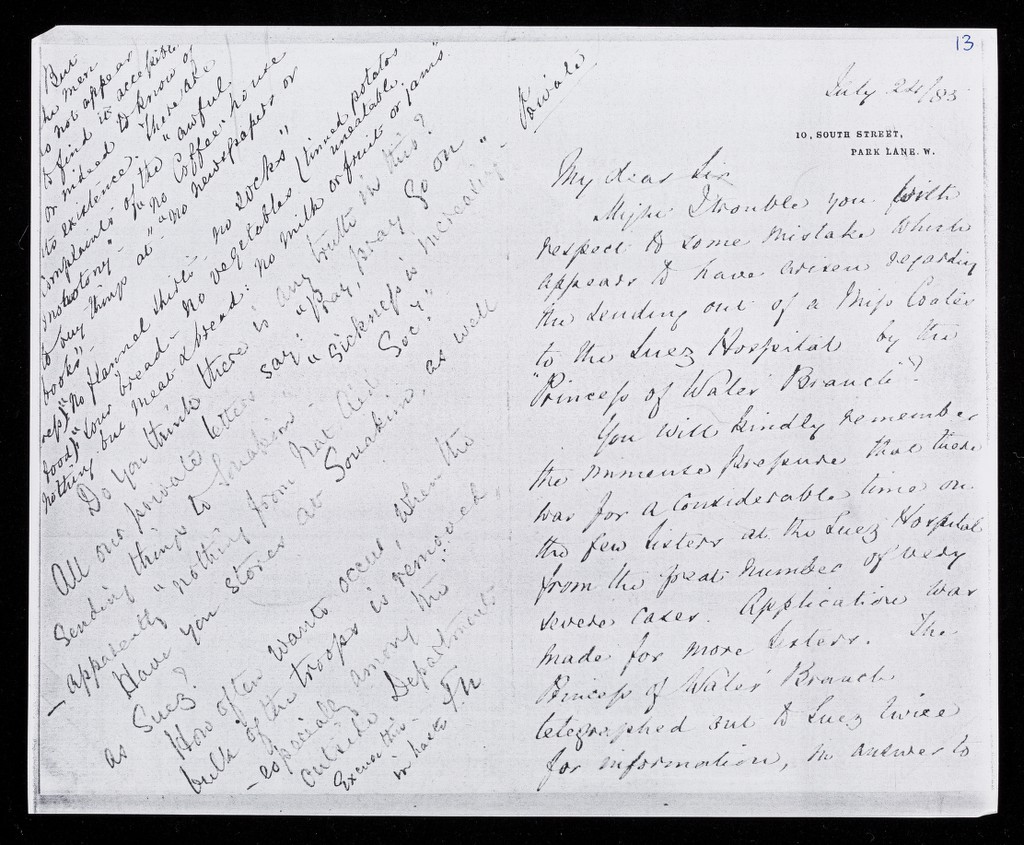 13
Private
July 24/85
10, SOUTH STREET,
PARK LANE. W.
My dear Sir
Might I trouble you with
respect to some mistake which
appears to have arisen regarding
the sending out of a Miss Coates
to the Suez Hospital by the
"Princess of Wales' Branch"?
You will kindly remember
the immense pressure that there
was for a considerable time on
the few Sisters at the Suez Hospital
from the great number of very
severe cases. Application was
made for more Sisters. The
Princess of Wales' Branch
telegraphed out to Suez twice
for information, no answer to
But
the men
do not appear
to find it accessible
or indeed to know of
its existence. There are
complaints of the "awful
monotony" - "no Coffee" house
to buy things at - "no newspapers or
books" -
"No flannel shirts - no socks"
food "sour bread - no vegetables (tinned potatoes uneatable
nothing but meat & bread: no milk or fruit or jams."
Do you think there is any truth in this?
All our private letters say: "Pray, pray go on
sending things to Souakim" "sickness is increasing" -
- apparently "nothing from Nat Aid Soc"
Have you stores at Souakim, as well
as Suez?
How often wants occur, when the
bulk of the troops is removed,
- especially among the
outside Departments
Excuse this
in haste FN